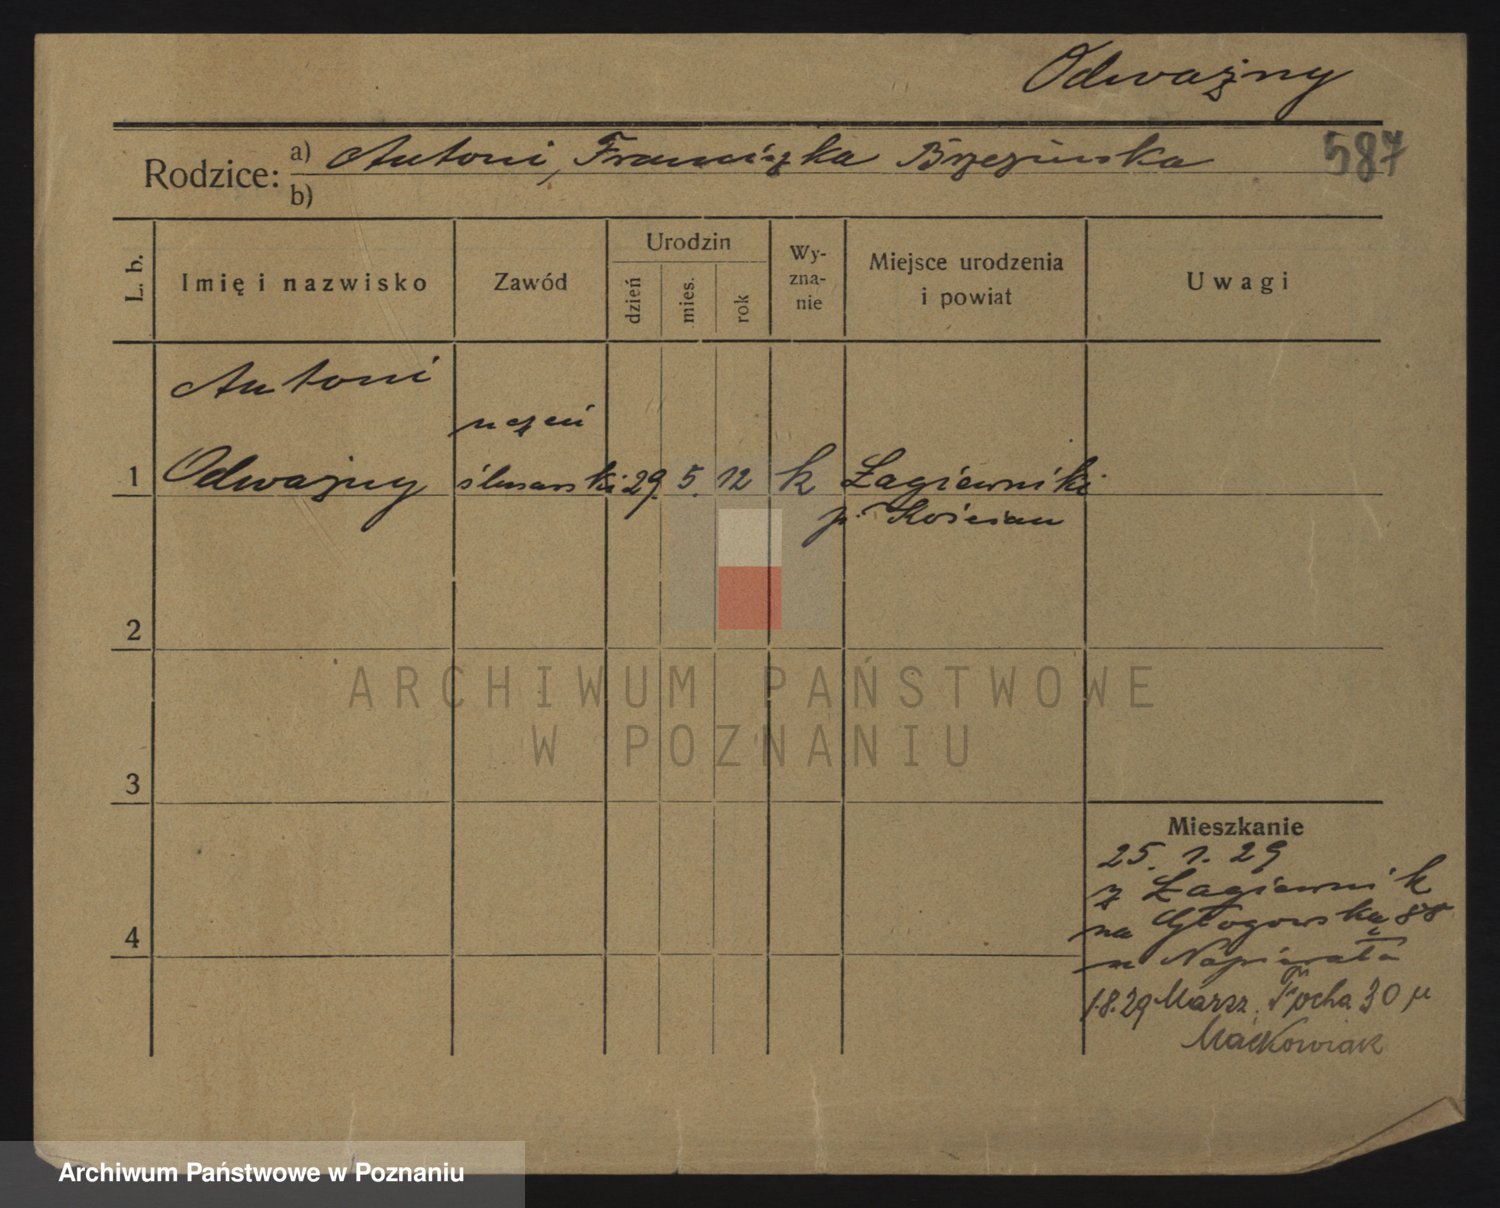 Odważny
587
Rodzice: a) Antoni, Franciszka Brzezinska
b)
L. b.
Imię i nazwisko
Zawód
Urodzin
dzień
mies.
rok
Wy-
zna-
nie
Miejsce urodzenia
i powiat
Uwagi
Antoni
uczeń
1 Odważny ślusarski 29. 5. 12 k Łagiewniki
p. Kościan
2
ARCHIWUM PAŃSTWOWE
W POZNANIU
3
Mieszkanie
25. 1. 29
z Łagiewnik
4
na Głogowską 88
u Napierała
1.8.29 Marsz. Focha 30 u
Maćkowiak
Archiwum Państwowe w Poznaniu